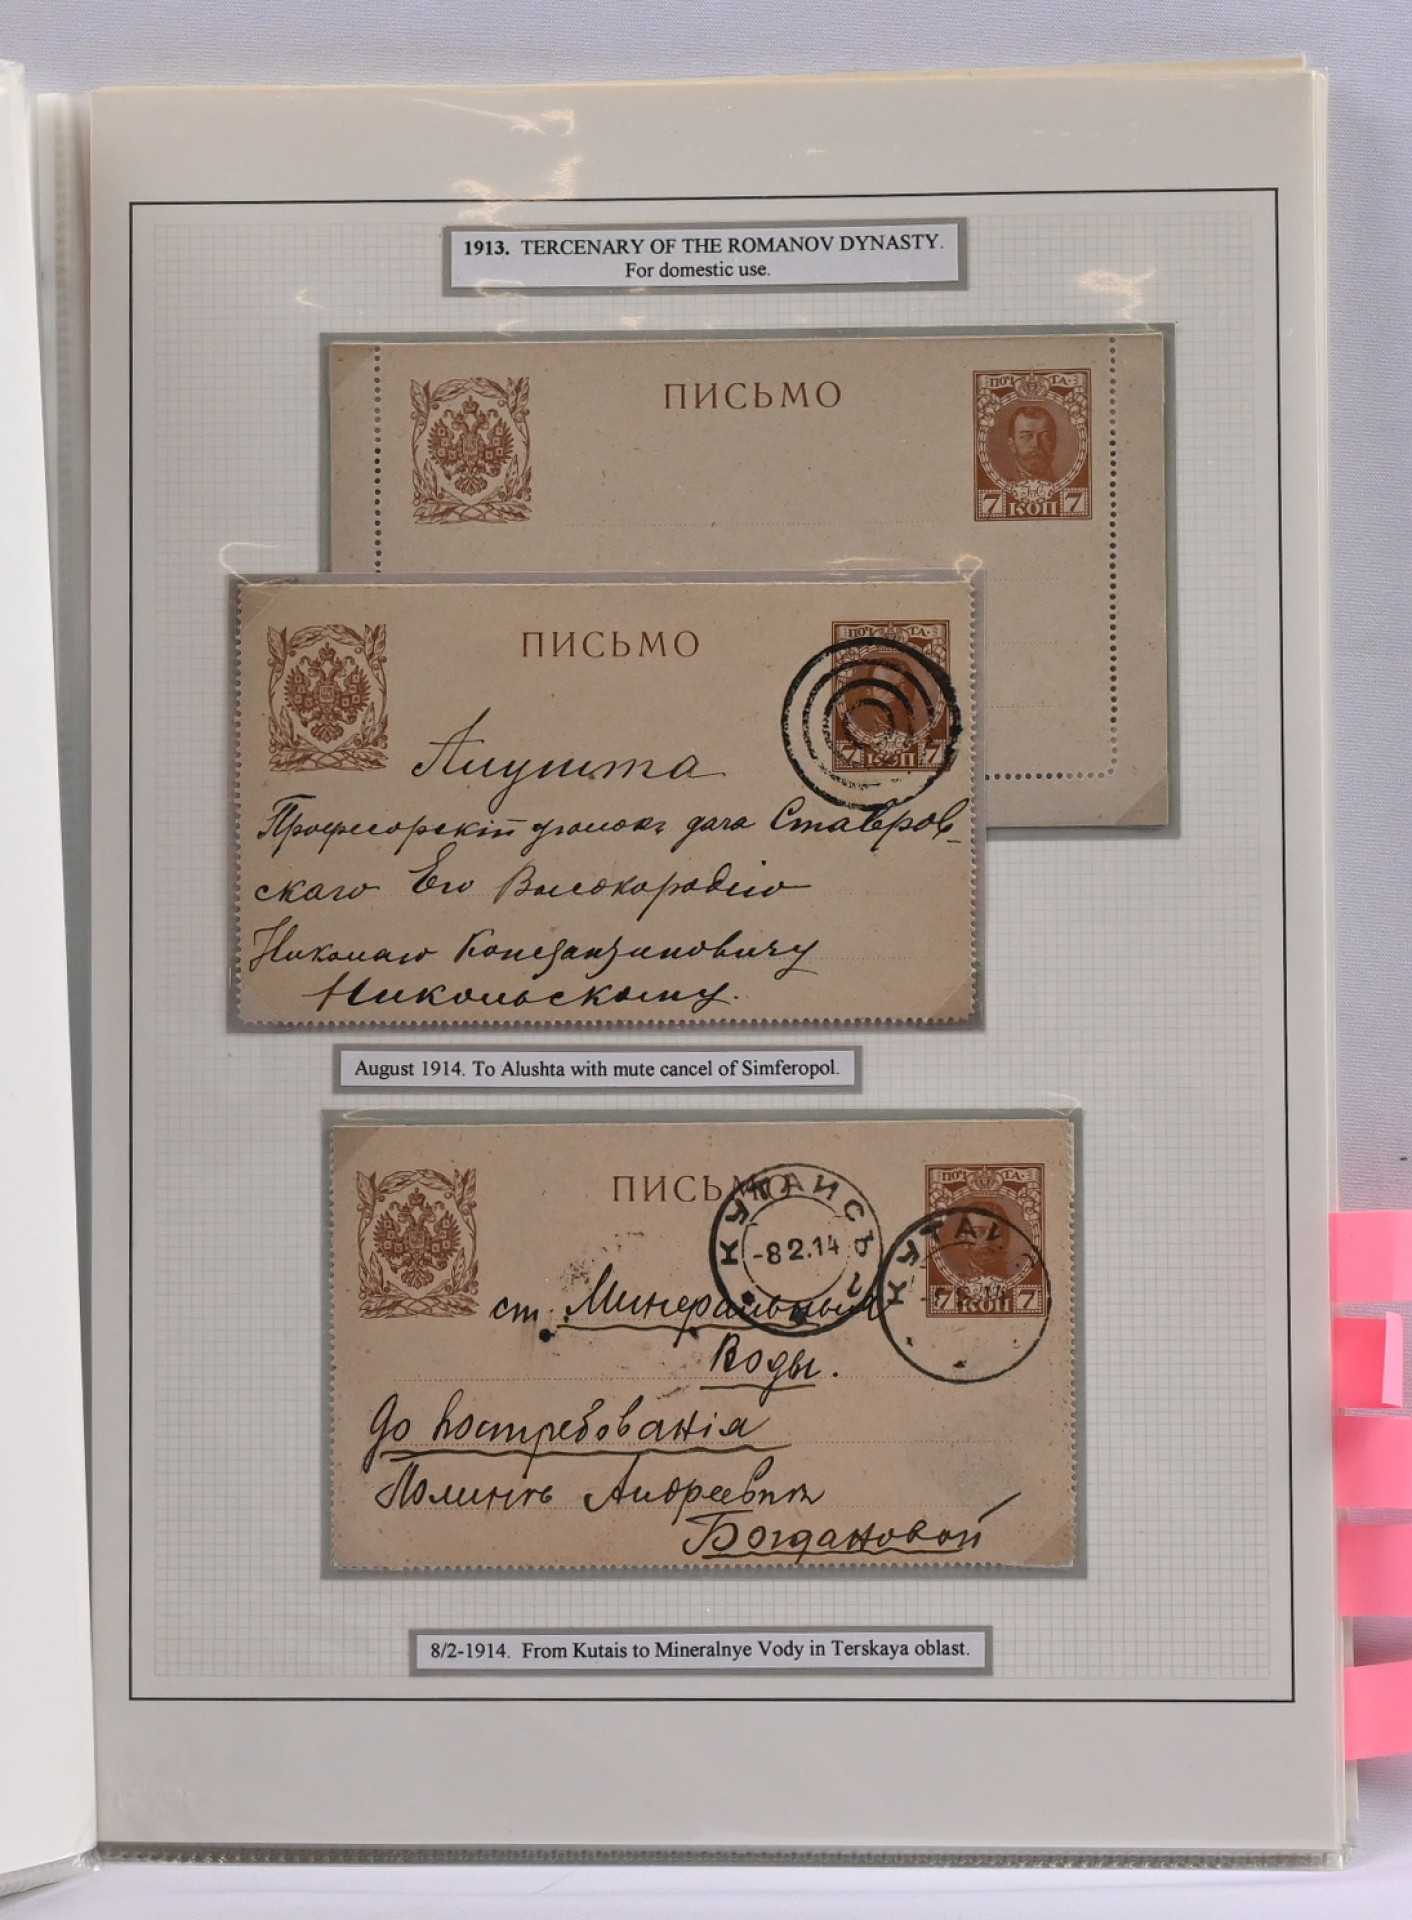 1913. TERCENARY OF THE ROMANOV DYNASTY.
For domestic use.
ПИСЬМО
ПОЧТА
7 КОП 7
ПИСЬМО
ПОЧТА
7 КОП 7
Алушта
Професорскiй уголокъ дача Ставров-
скаго Его Высокородiю
Николаю Константиновичу
Никольскому.
August 1914. To Alushta with mute cancel of Simferopol.
ПИСЬМО
ПОЧТА
7 КОП 7
КУТАИСЪ
-8 2.14
КУТАИ
ст. Минеральныя
Воды.
До востребованiя
Полинѣ Андреевнѣ
Богдановой
8/2-1914. From Kutais to Mineralnye Vody in Terskaya oblast.